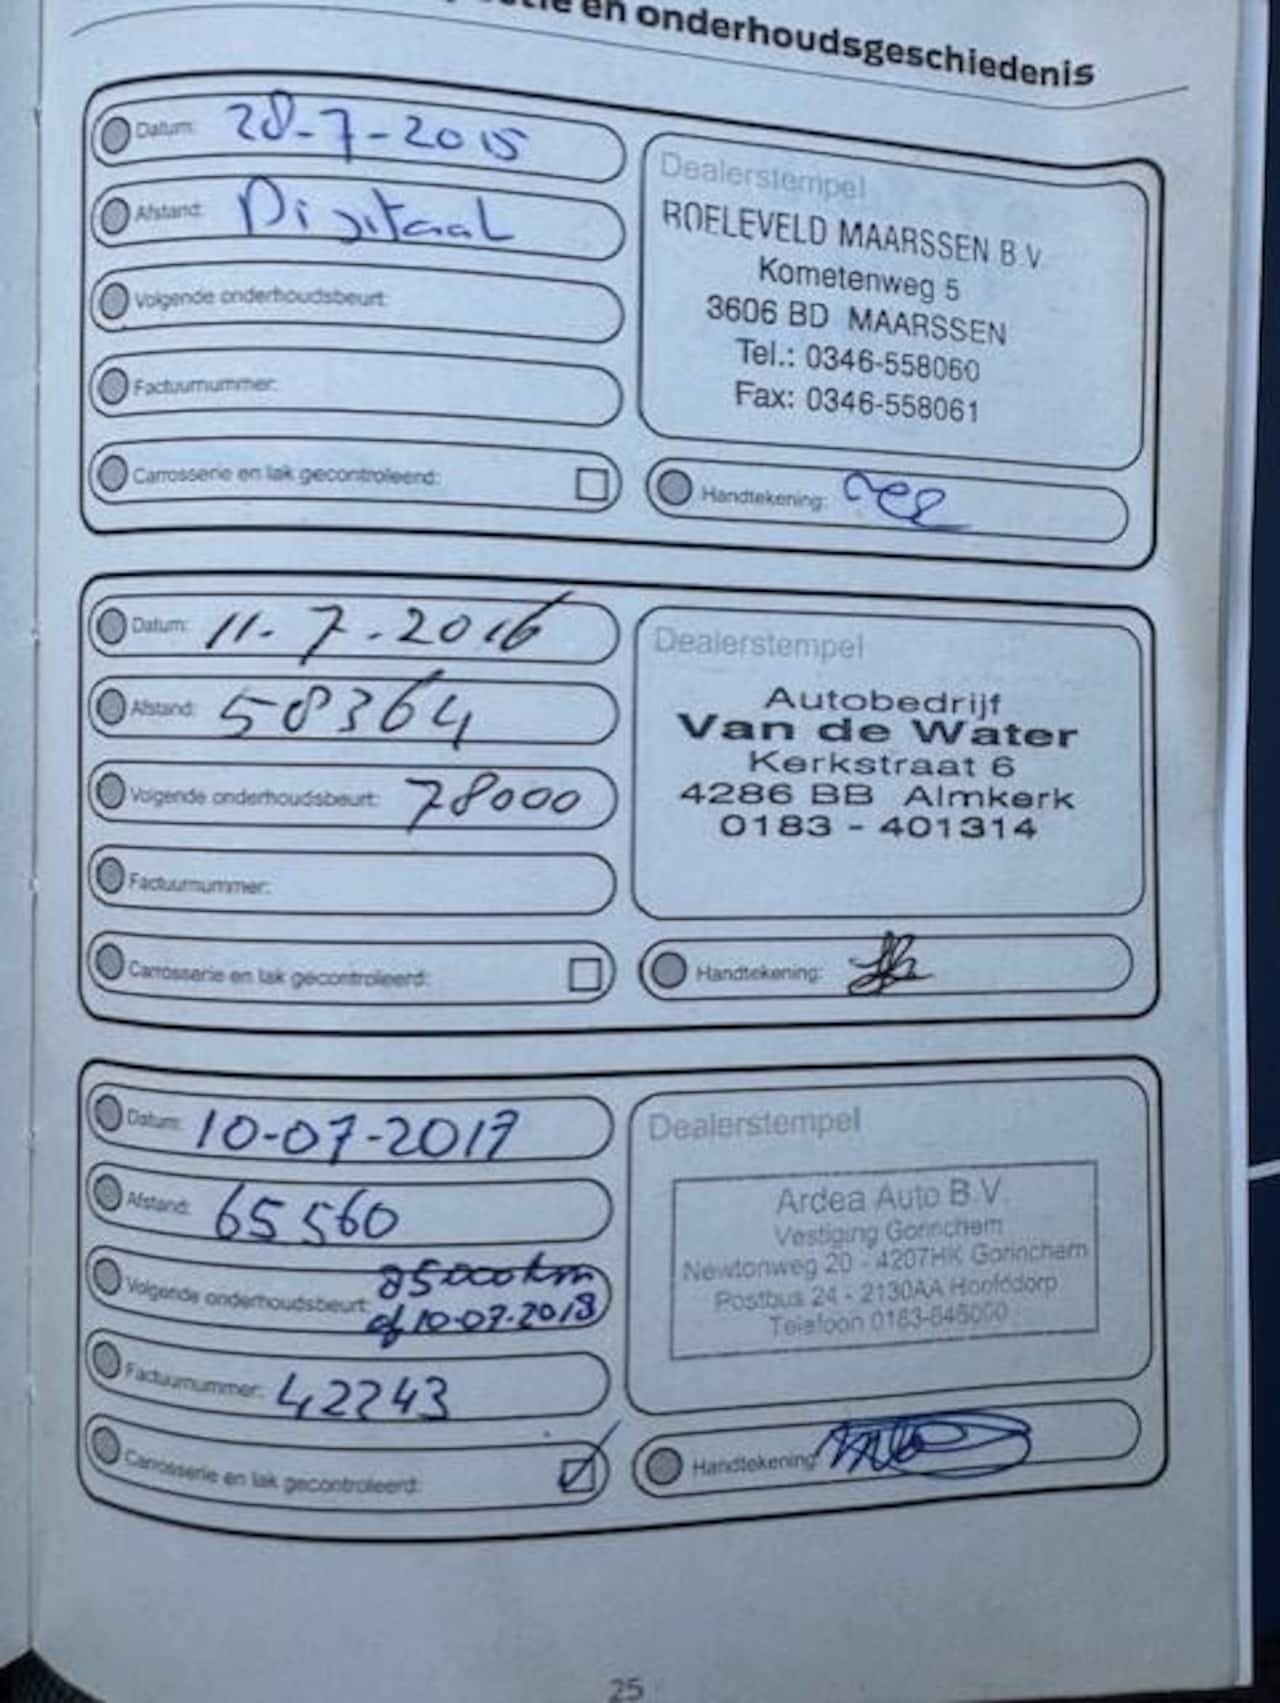 en onderhoudsgeschiedenis
Datum: 28-7-2015
Afstand: Digitaal
Volgende onderhoudsbeurt:
Factuurnummer:
Carrosserie en lak gecontroleerd:
Dealerstempel
ROELEVELD MAARSSEN B.V.
Kometenweg 5
3606 BD MAARSSEN
Tel.: 0346-558060
Fax: 0346-558061
Handtekening:
Datum: 11.7.2016
Afstand: 58364
Volgende onderhoudsbeurt: 78000
Factuurnummer:
Carrosserie en lak gecontroleerd:
Dealerstempel
Autobedrijf
Van de Water
Kerkstraat 6
4286 BB Almkerk
0183 - 401314
Handtekening:
Datum: 10-07-2017
Afstand: 65560
Volgende onderhoudsbeurt: 85000km
of 10-07-2018
Factuurnummer: 42243
Carrosserie en lak gecontroleerd:
Dealerstempel
Ardea Auto B.V.
Vestiging Gorinchem
Newtonweg 20 - 4207HK Gorinchem
Postbus 24 - 2130AA Hoofddorp
Telefoon 0183-646000
Handtekening:
25